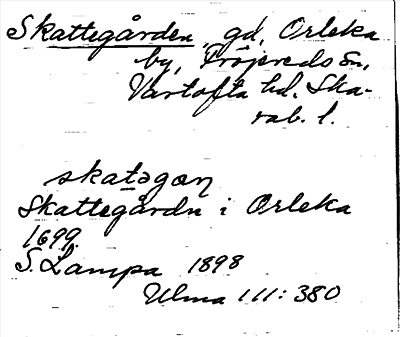 Skattegården, gd, Orleka
by, Fröjereds sn,
Vartofta hd. Ska-
rab. l.
skatəgọn
Skattegårdn i Orleka
1699.
S. Lampa 1898
Ulma 111: 380